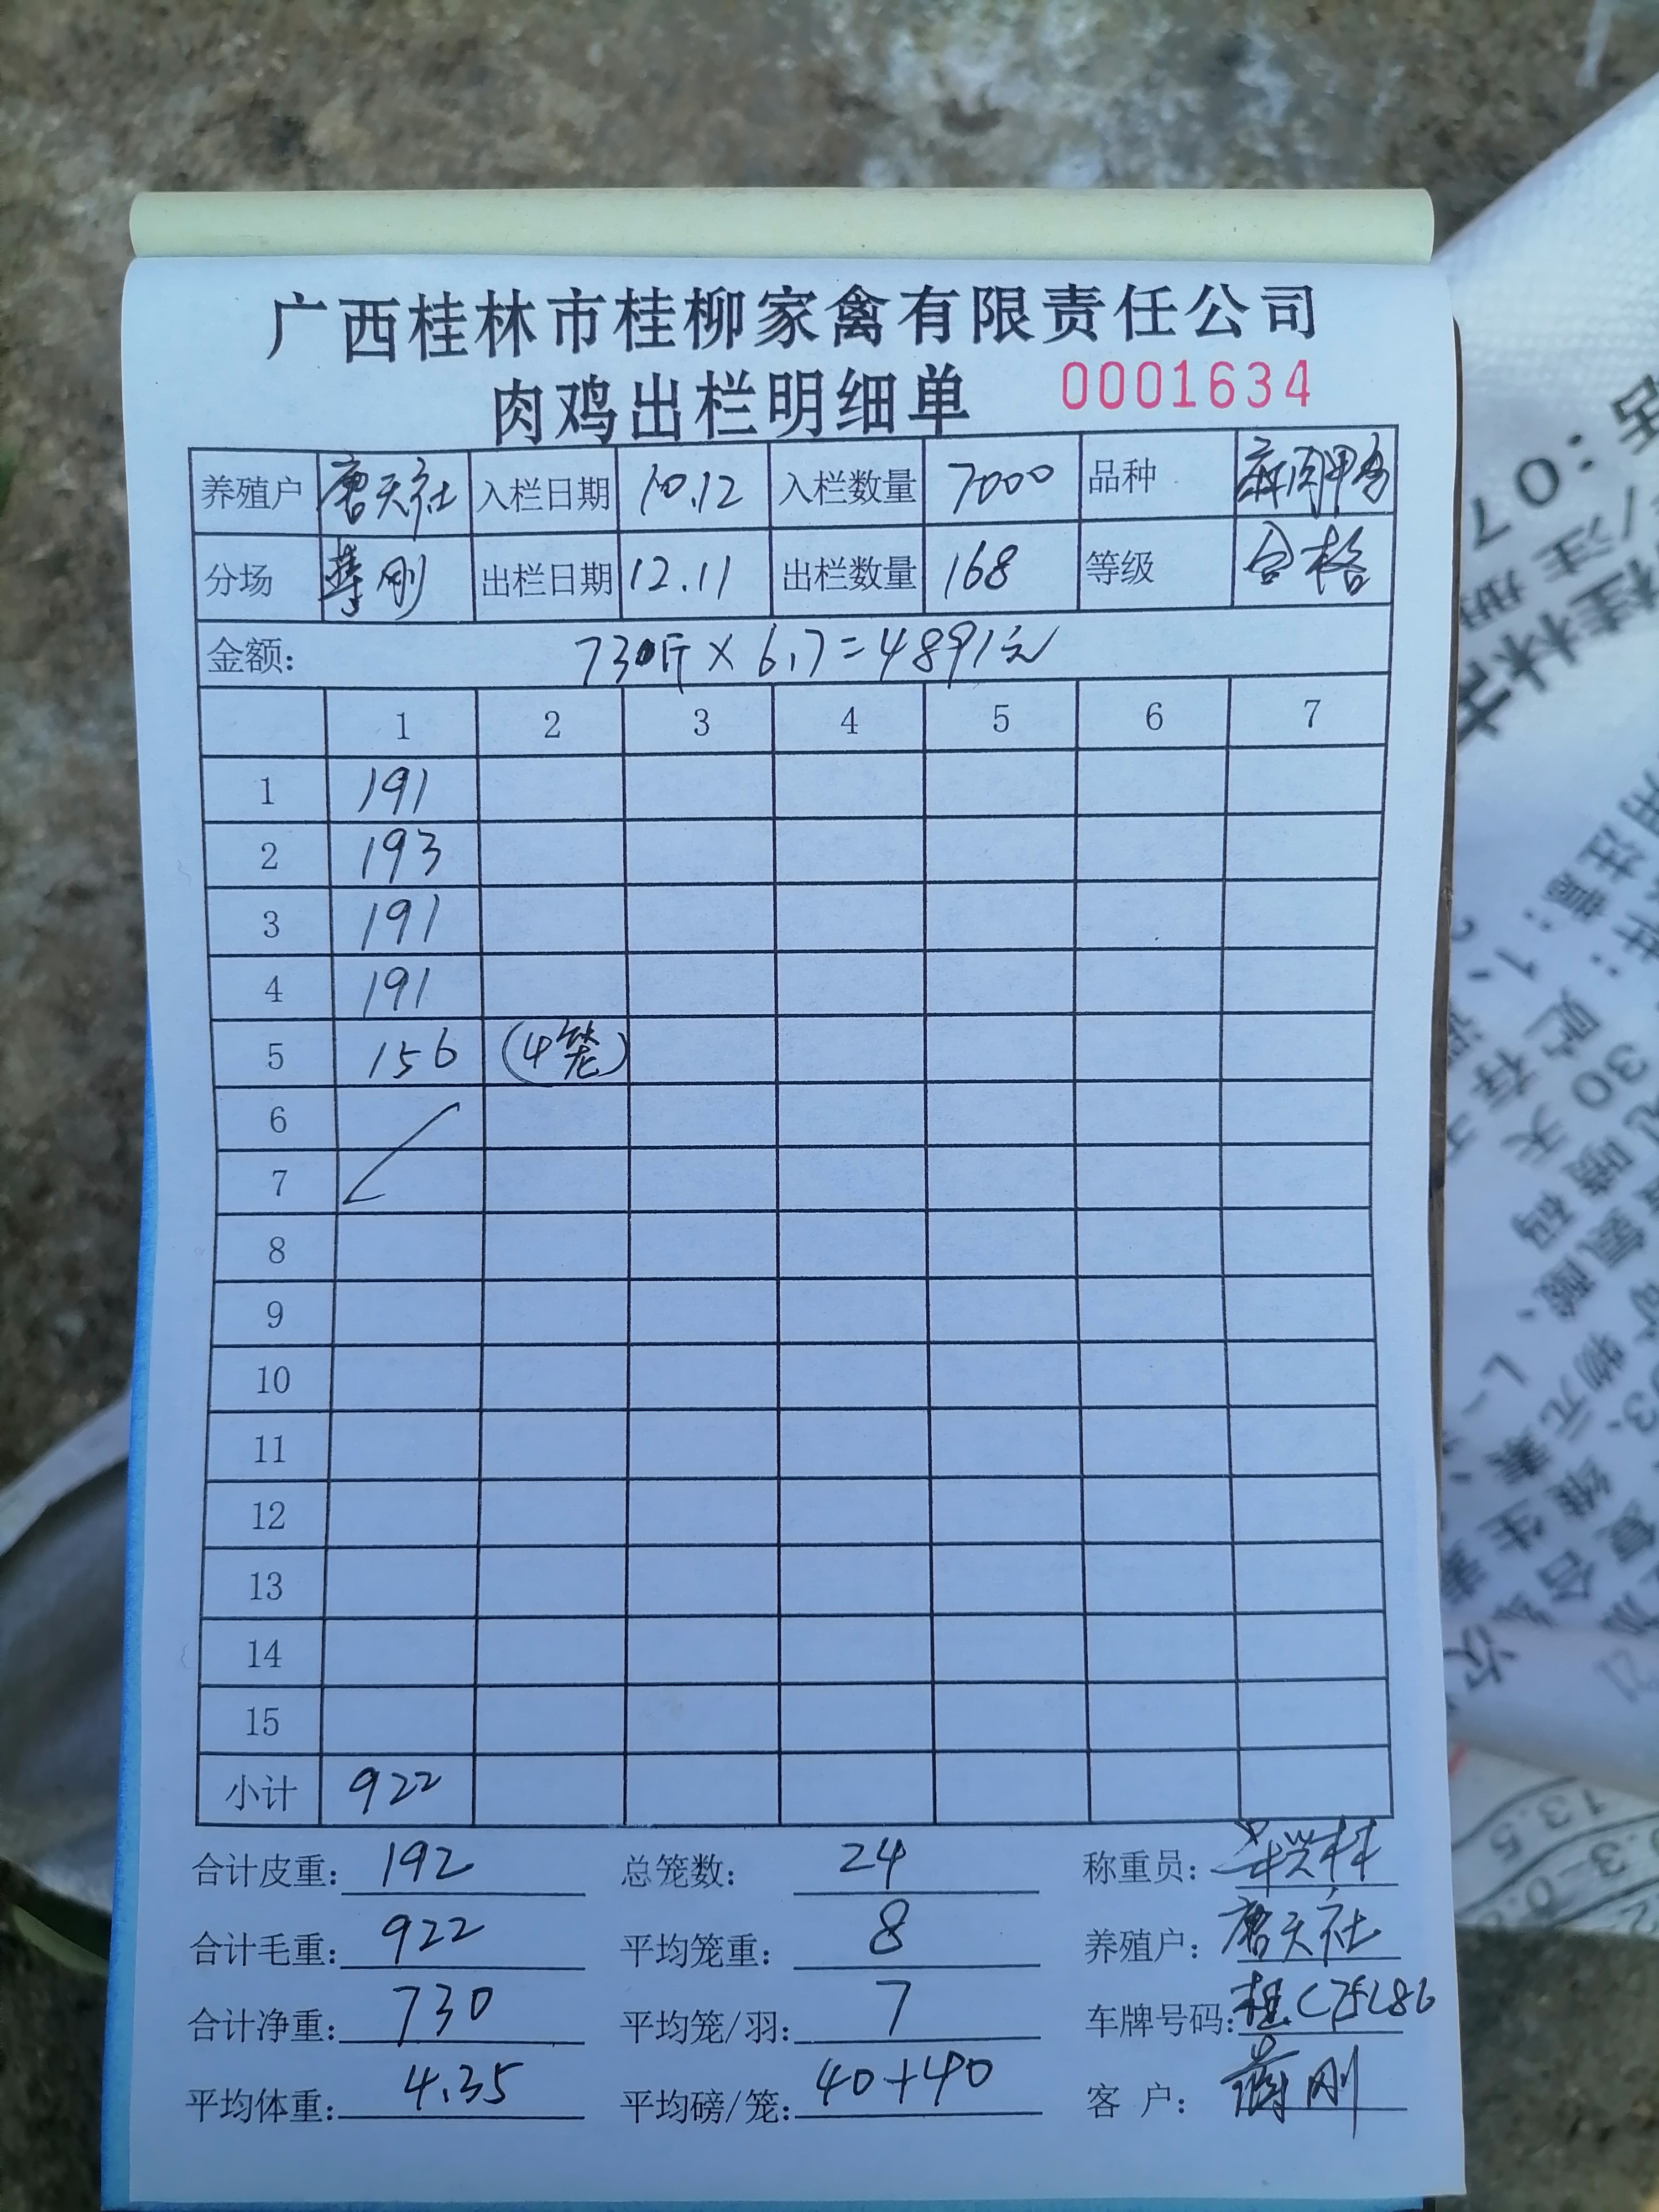 广西桂林市桂柳家禽有限责任公司
肉鸡出栏明细单 0001634
养殖户 唐天社 入栏日期 10.12 入栏数量 7000 品种
分场 蒋刚 出栏日期 12.11 出栏数量 168 等级 合格
金额: 730斤×6.7=4891元
1 2 3 4 5 6 7
1 191
2 193
3 191
4 191
5 156 (4笼)
6
7
8
9
10
11
12
13
14
15
小计 922
合计皮重: 192 总笼数: 24 称重员:
合计毛重: 922 平均笼重: 8 养殖户: 唐天社
合计净重: 730 平均笼/羽: 7 车牌号码: 桂C
平均体重: 4.35 平均磅/笼: 40+40 客户: 蒋刚